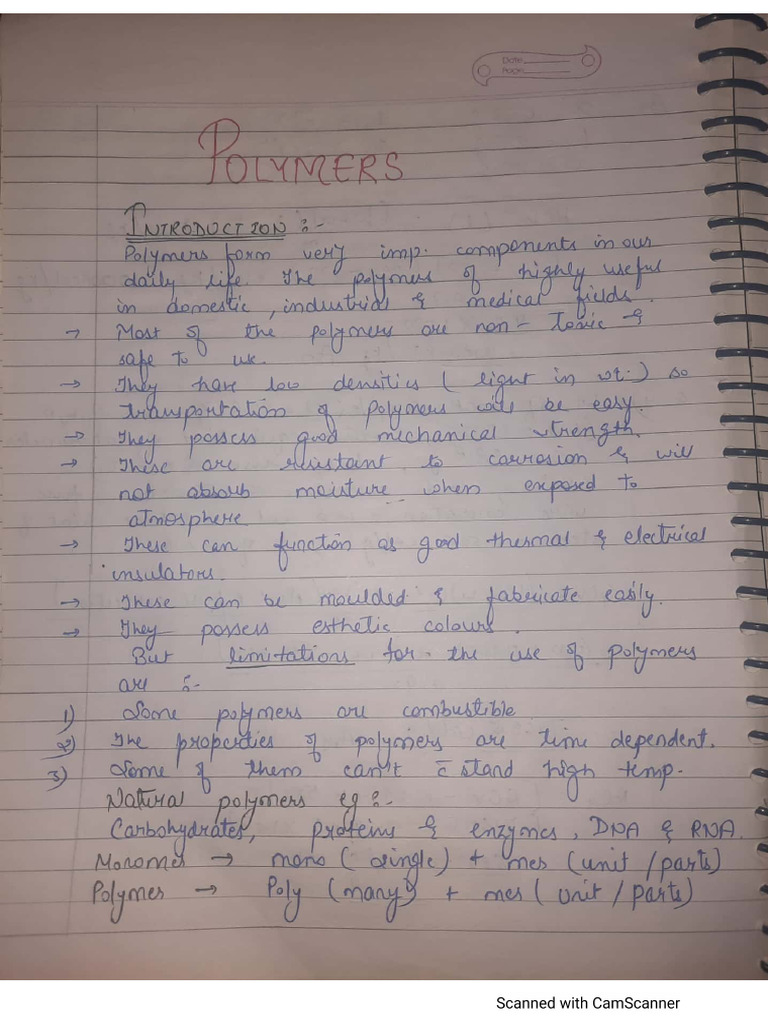 Date
Page
POLYMERS
INTRODUCTION :-
Polymers form very imp. components in our
daily life. The polymers of highly useful
in domestic, industrial & medical fields.
→ Most of the polymers are non-Toxic &
safe to use.
→ They have low densities (light in wt.) so
transportation of polymers will be easy.
→ They possess good mechanical strength.
→ These are resistant to corrosion & will
not absorb moisture when exposed to
atmosphere
→ These can function as good thermal & electrical
insulators.
→ These can be moulded & fabricate easily.
→ They possess esthetic colours.
But limitations for the use of polymers
are :-
1) Some polymers are combustible
2) The properties of polymers are time dependent.
3) Some of them can't c̄ stand high temp.
Natural polymers eg :-
Carbohydrates, proteins & enzymes, DNA & RNA.
Monomer → mono (single) + mer (unit / parts)
Polymer → Poly (many) + mer (unit / parts)
Scanned with CamScanner